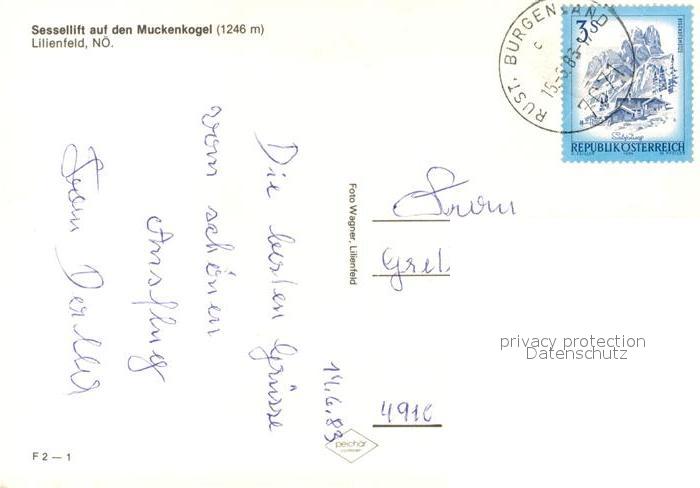 Sessellift auf den Muckenkogel (1246 m)
Lilienfeld, NÖ.
RUST, BURGENLAND
15.-6.83-
3S
REPUBLIK ÖSTERREICH
Die besten Grüsse
vom schönen
Ausflug
Foto Wagner, Lilienfeld
14.6.83
4910
privacy protection
Datenschutz
F 2 — 1